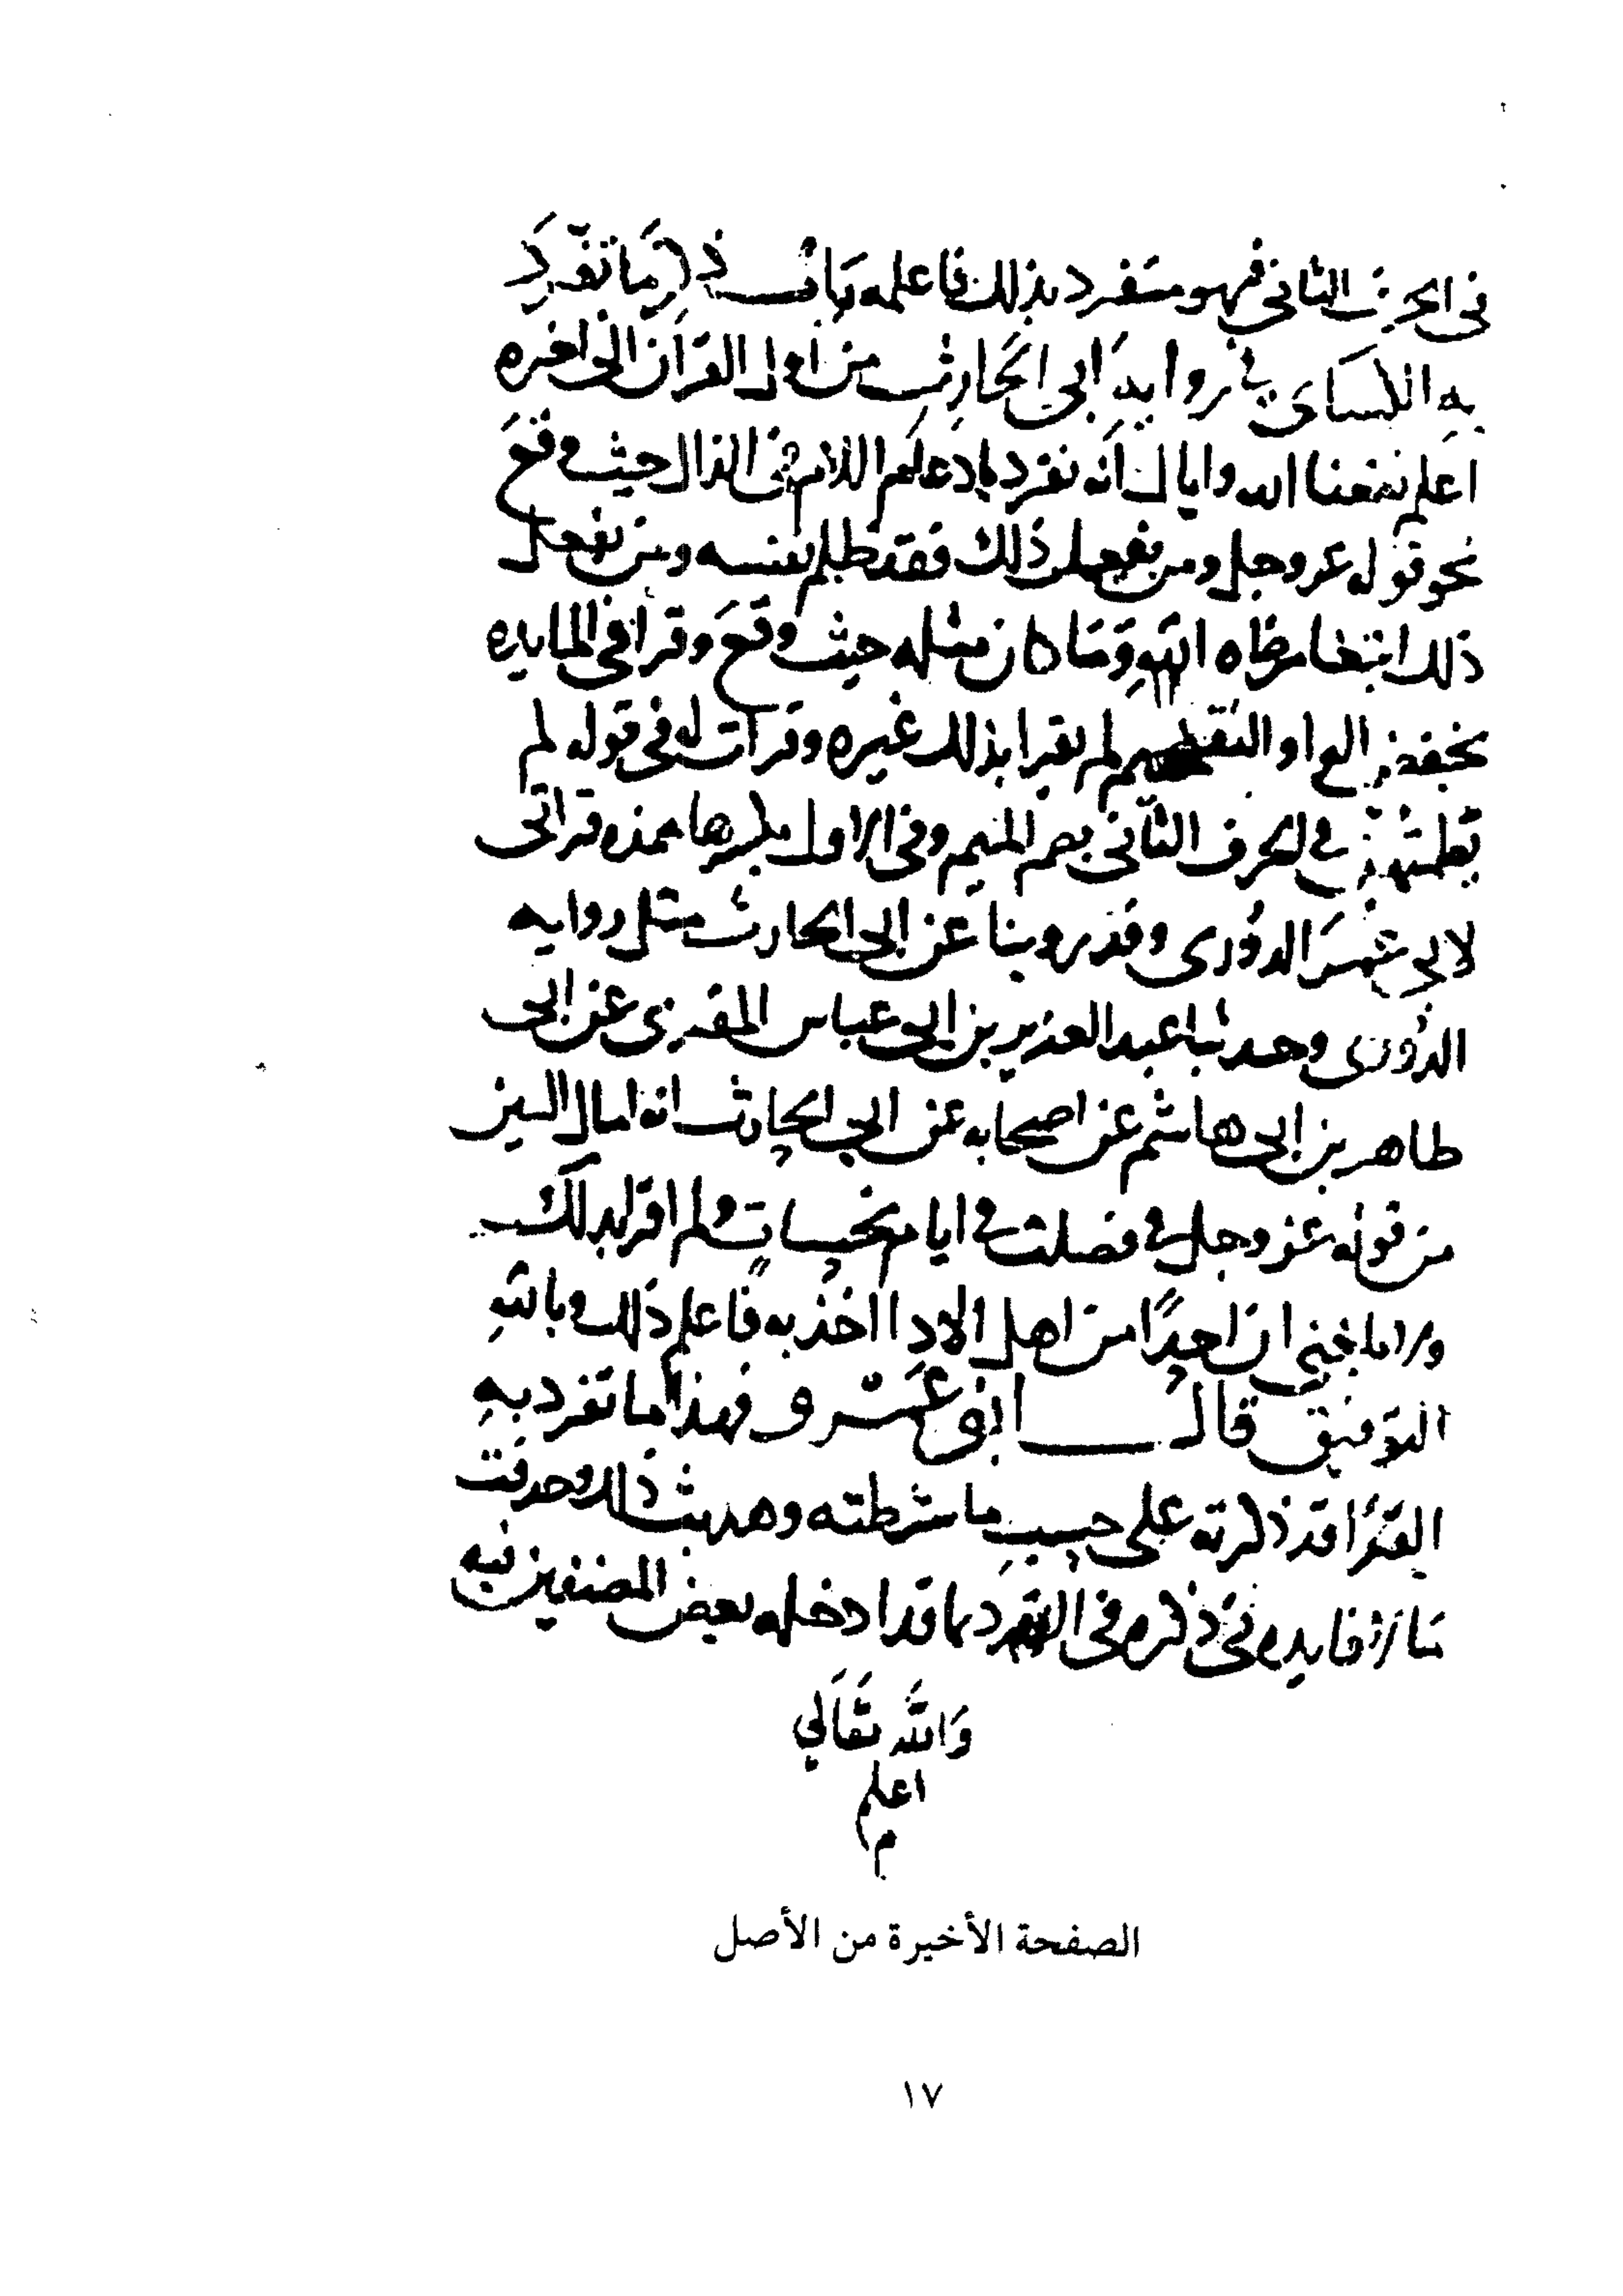 في الحرف الثاني فهو متفرد بذلك فاعلمه باب ذكر ما تفرد
به الكساى في رواية ابي الحارث من اول القران الى اخره
اعلم نفعنا الله واياك انه تفرد بادغام اللام في الذال حيث وقع
نحو قوله عز وجل ومن يفعل ذلك فقد ظلم نفسه ومن يفعل
ذلك ابتغا مرضاه الله وما كان مثله حيث وقع وقرا في المايده
بخفض لم يقرا بذلك غيره وقرات له في قوله لم
يطمثهن في الحرف الثاني بضم الميم وفي الاول بكسرها هذه قراتي
لابي الدوري وقد روينا عن ابي الحارث مثل روايه
الدوري وحدثنا عبد العزيز بن ابي عباس المقري عن ابي
طاهر بن ابي هاشم عن اصحابه عن ابي الحارث انه امال السين
من قوله عز وجل في فصلت في ايام نحسات ولم اقرا بذلك
ولا بلغني ان احدًا من اهل الادا اخذ به فاعلم ذلك وبالله
التوفيق قال ابو عمرو فهذا ما تفرد به
القرا قد ذكرته على حسب ما شرطته وهذبت ذلك وحذفت
ما لا فايده في ذكره في التفرد مما قد ادخله بعض المصنفين فيه
والله تعالي
اعلم
م
الصفحة الأخيرة من الأصل
١٧